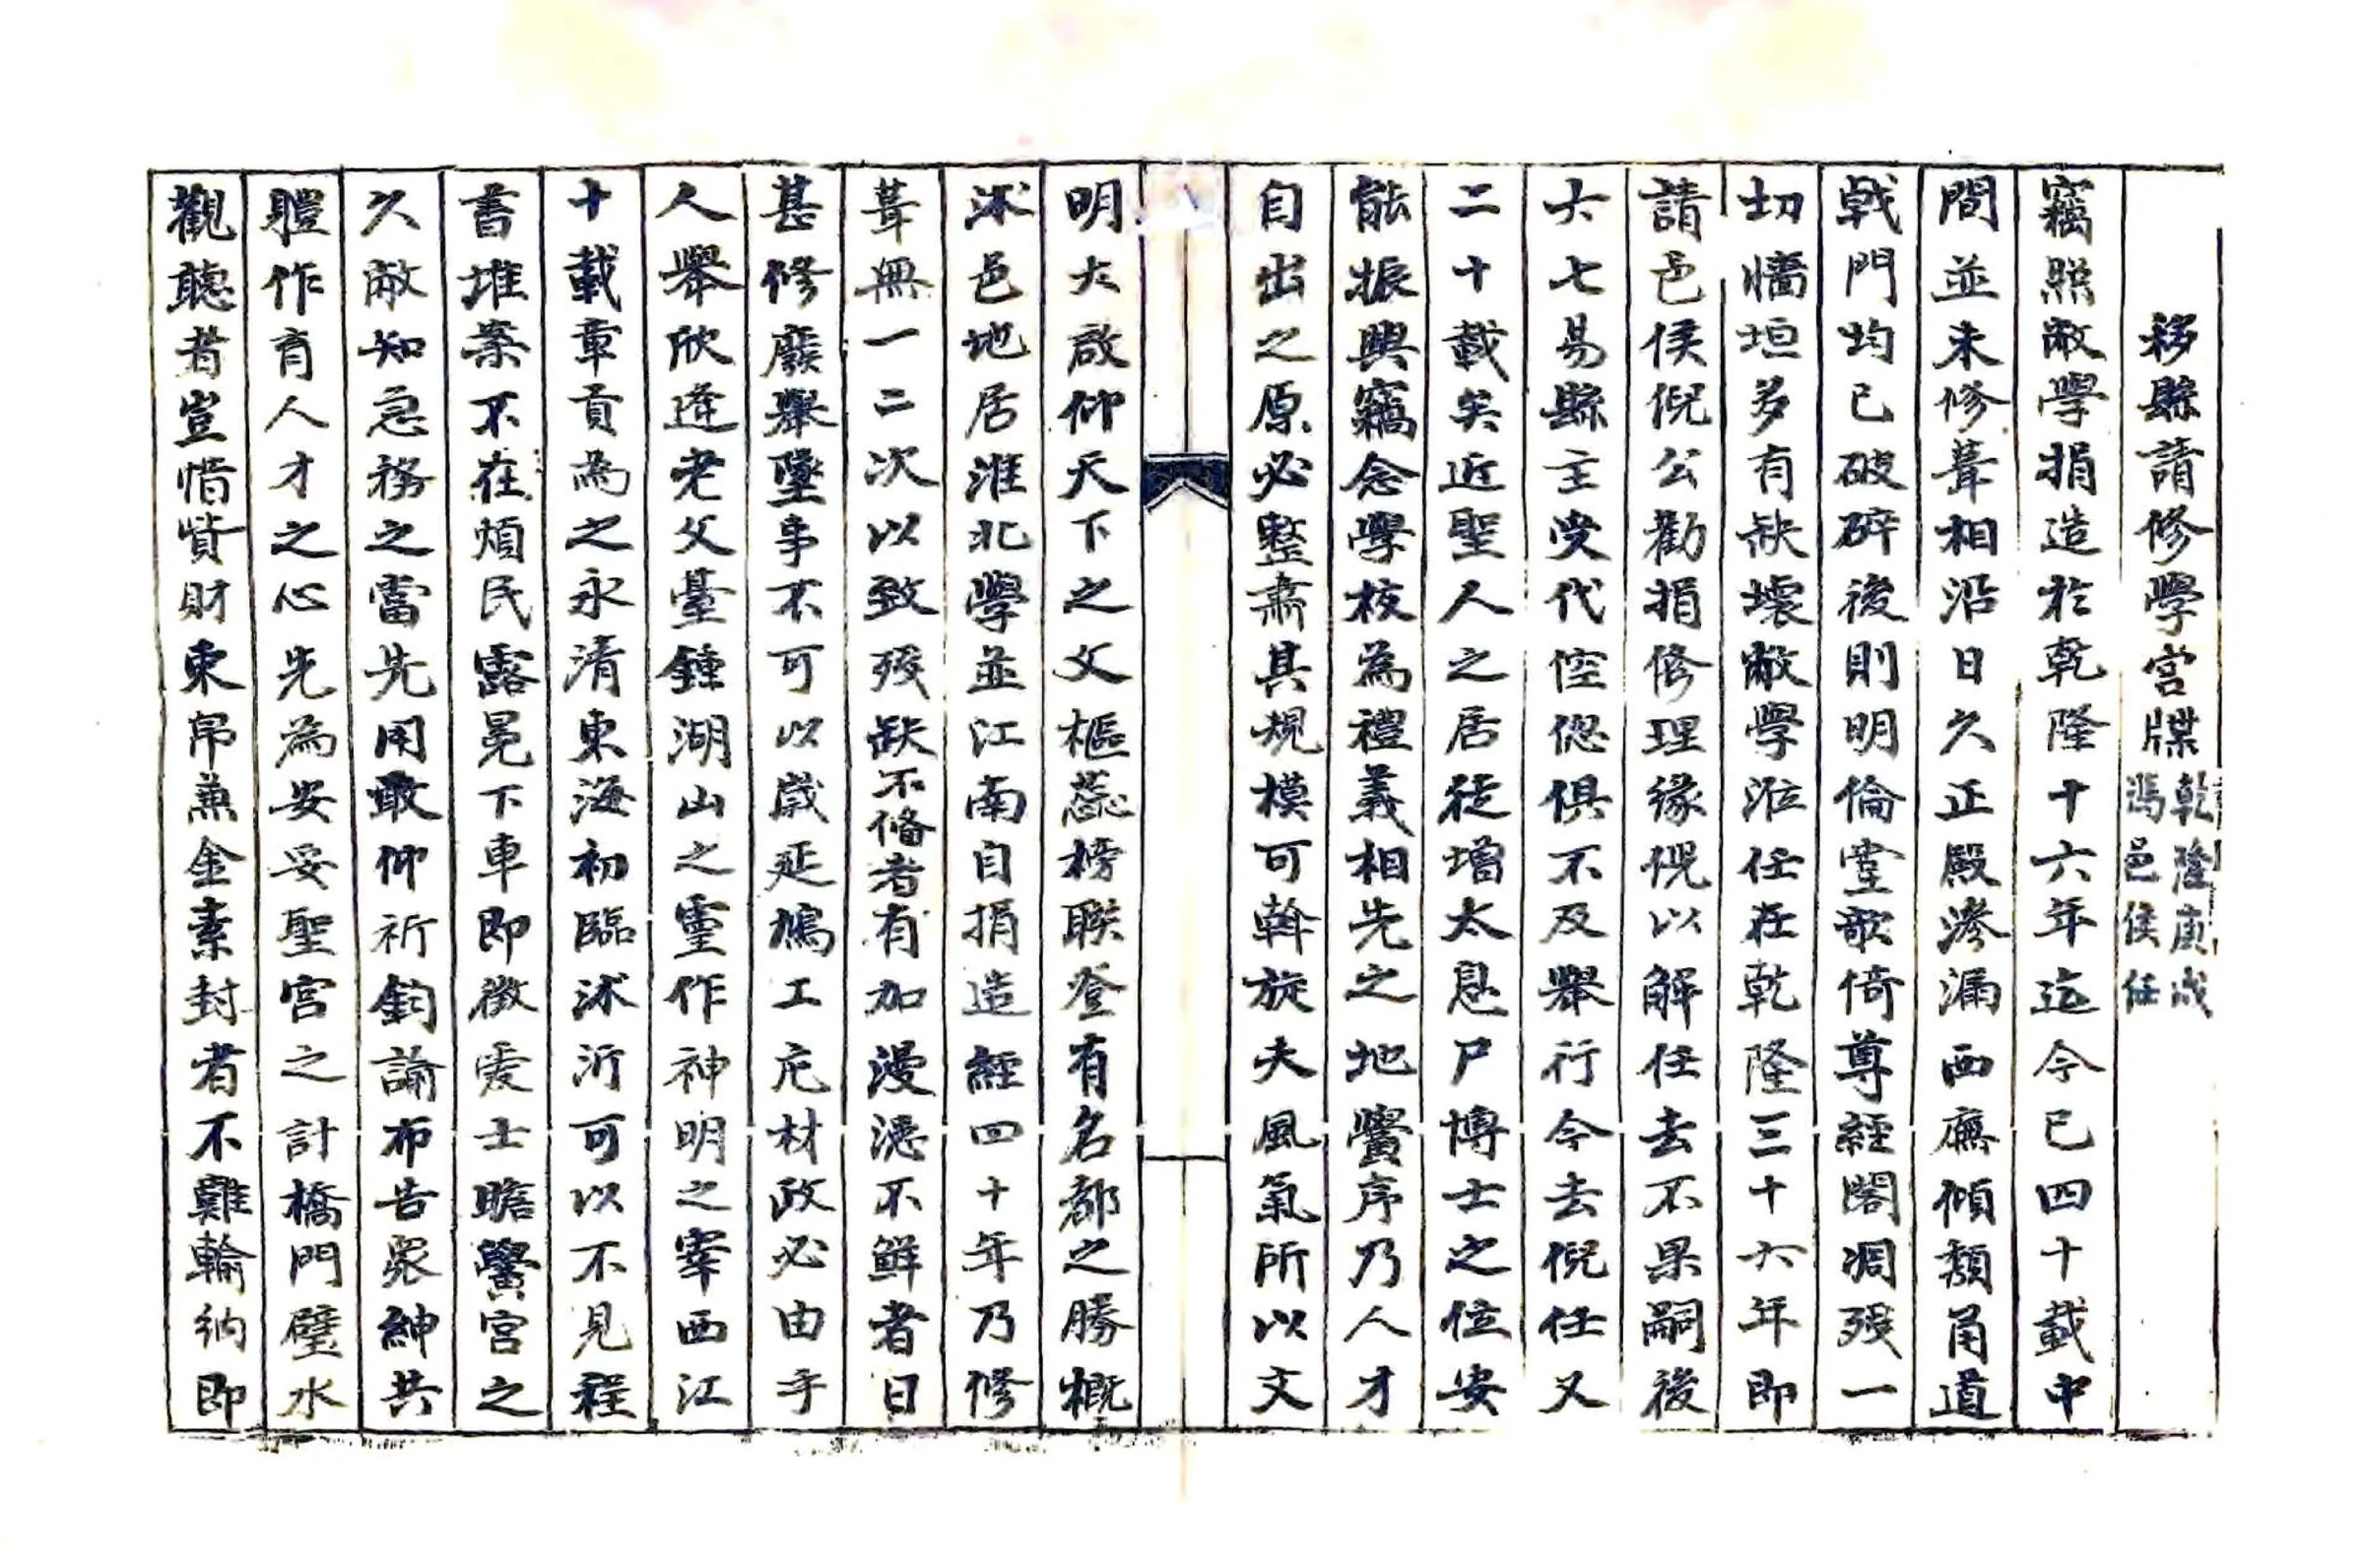 移縣請修學宮牒 乾隆庚戌 馮邑侯任
竊照敝學捐造於乾隆十六年迄今已四十載中
間並未修葺相沿日久正殿滲漏西廡傾頹甬道
戟門均已破碎後則明倫堂欹倚尊經閣凋殘一
切牆垣多有缺壞敝學涖任在乾隆三十六年即
請邑侯倪公勸捐修理緣倪以解任去不果嗣後
六七易縣主受代倥傯俱不及舉行今去倪任又
二十載矣近聖人之居徒增太息尸博士之位安
能振興竊念學校為禮義相先之地黌序乃人才
自出之原必整肅其規模可斡旋夫風氣所以文
明大啟仰天下之文樞蕊榜聯登有名都之勝概
沭邑地居淮北學並江南自捐造經四十年乃修
葺無一二次以致殘缺不脩者有加漫漶不鮮者日
甚修廢舉墜事不可以歲延鳩工庀材政必由乎
人舉欣逢老父臺鍾湖山之靈作神明之宰西江
十載章貢為之永清東海初臨沭沂可以不見程
書堆案不在煩民露冕下車即徵愛士瞻黌宮之
久敝知急務之當先用敢仰祈鈞諭布告衆紳共
體作育人才之心先為安妥聖宮之計橋門璧水
觀聽者豈惜貲財束帛兼金素封者不難輸納即